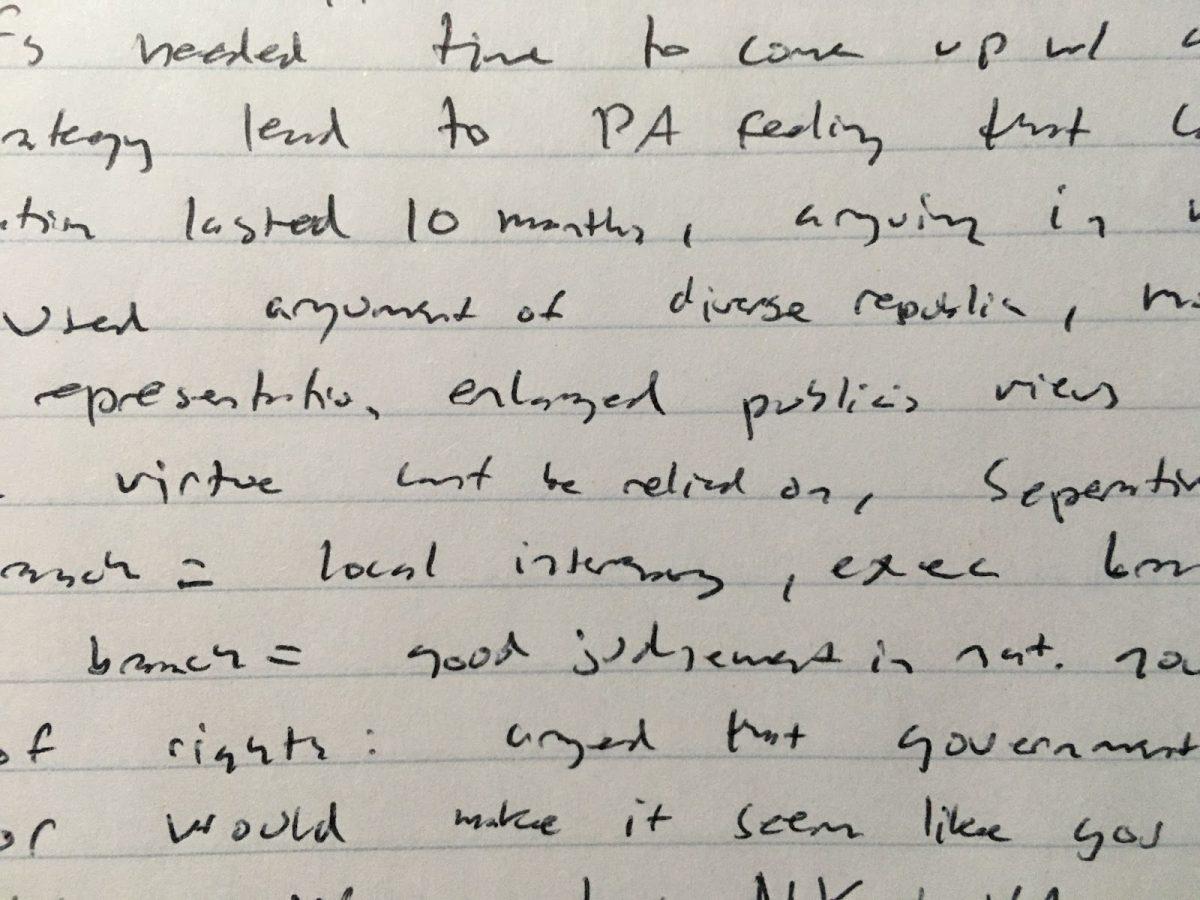 fs needed time to come up w/ a
rategy lead to PA feeling that
lasted 10 months, arguing in
used argument of diverse republic,
representation, enlarged publics views
virtue cant be relied on, Seperatio
ranch = local interests, exec bran
branch = good judgement in nat. gov
of rights: argued that government
or would make it seem like gov